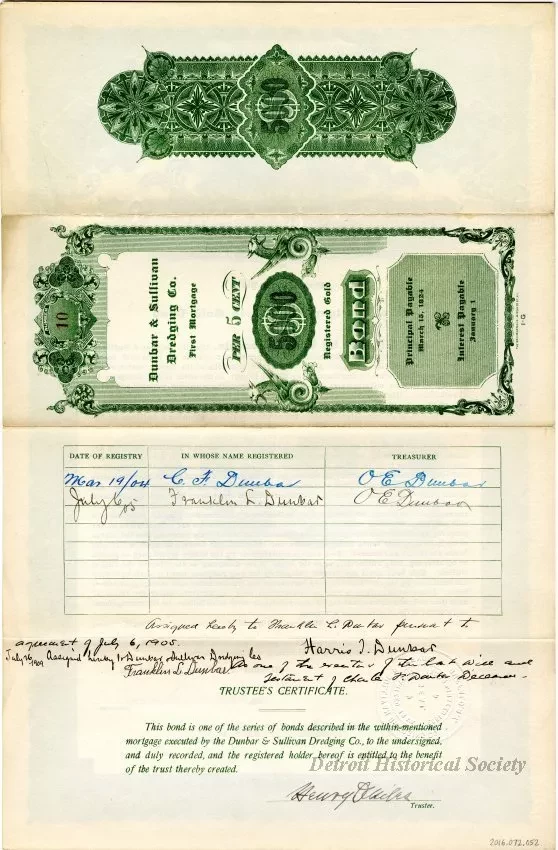 5000
10
Dunbar & Sullivan
Dredging Co.
First Mortgage
PER 5 CENT
5000
Registered Gold
Bond
Principal Payable
March 15, 1924
Interest Payable
January 1
DATE OF REGISTRY IN WHOSE NAME REGISTERED TREASURER
Mar 19/04 C. F. Dunbar O E Dunbar
July 6/05 Franklin L. Dunbar O E Dunbar
Assigned hereby to Franklin L. Dunbar pursuant to
agreement of July 6, 1905.
Harris T. Dunbar
As one of the executors of the last will and
testament of Charles F. Dunbar Deceased
July 26 1909 Assigned hereby to Dunbar & Sullivan Dredging Co
Franklin L. Dunbar
TRUSTEE'S CERTIFICATE.
This bond is one of the series of bonds described in the within-mentioned
mortgage executed by the Dunbar & Sullivan Dredging Co., to the undersigned,
and duly recorded, and the registered holder hereof is entitled to the benefit
of the trust thereby created.
Detroit Historical Society
Henry
Trustee.
2016.072.052